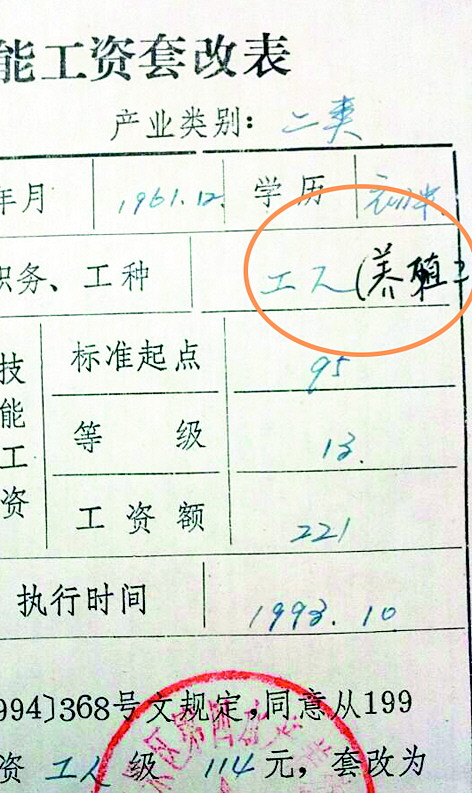 能工资套改表
产业类别: 二类
年月 1961.12. 学历 初中
职务、工种 工人(养殖)
技能工资 标准起点 95
等级 13.
工资额 221
执行时间 1993.10
994〕368号文规定,同意从199
资 工人 级 114 元, 套改为